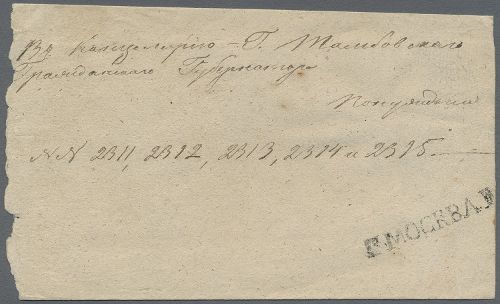 Въ Канцелярію Г. Тамбовскаго
Гражданскаго Губернатора
NN 2311, 2312, 2313, 2314 и 2315.
МОСКВА